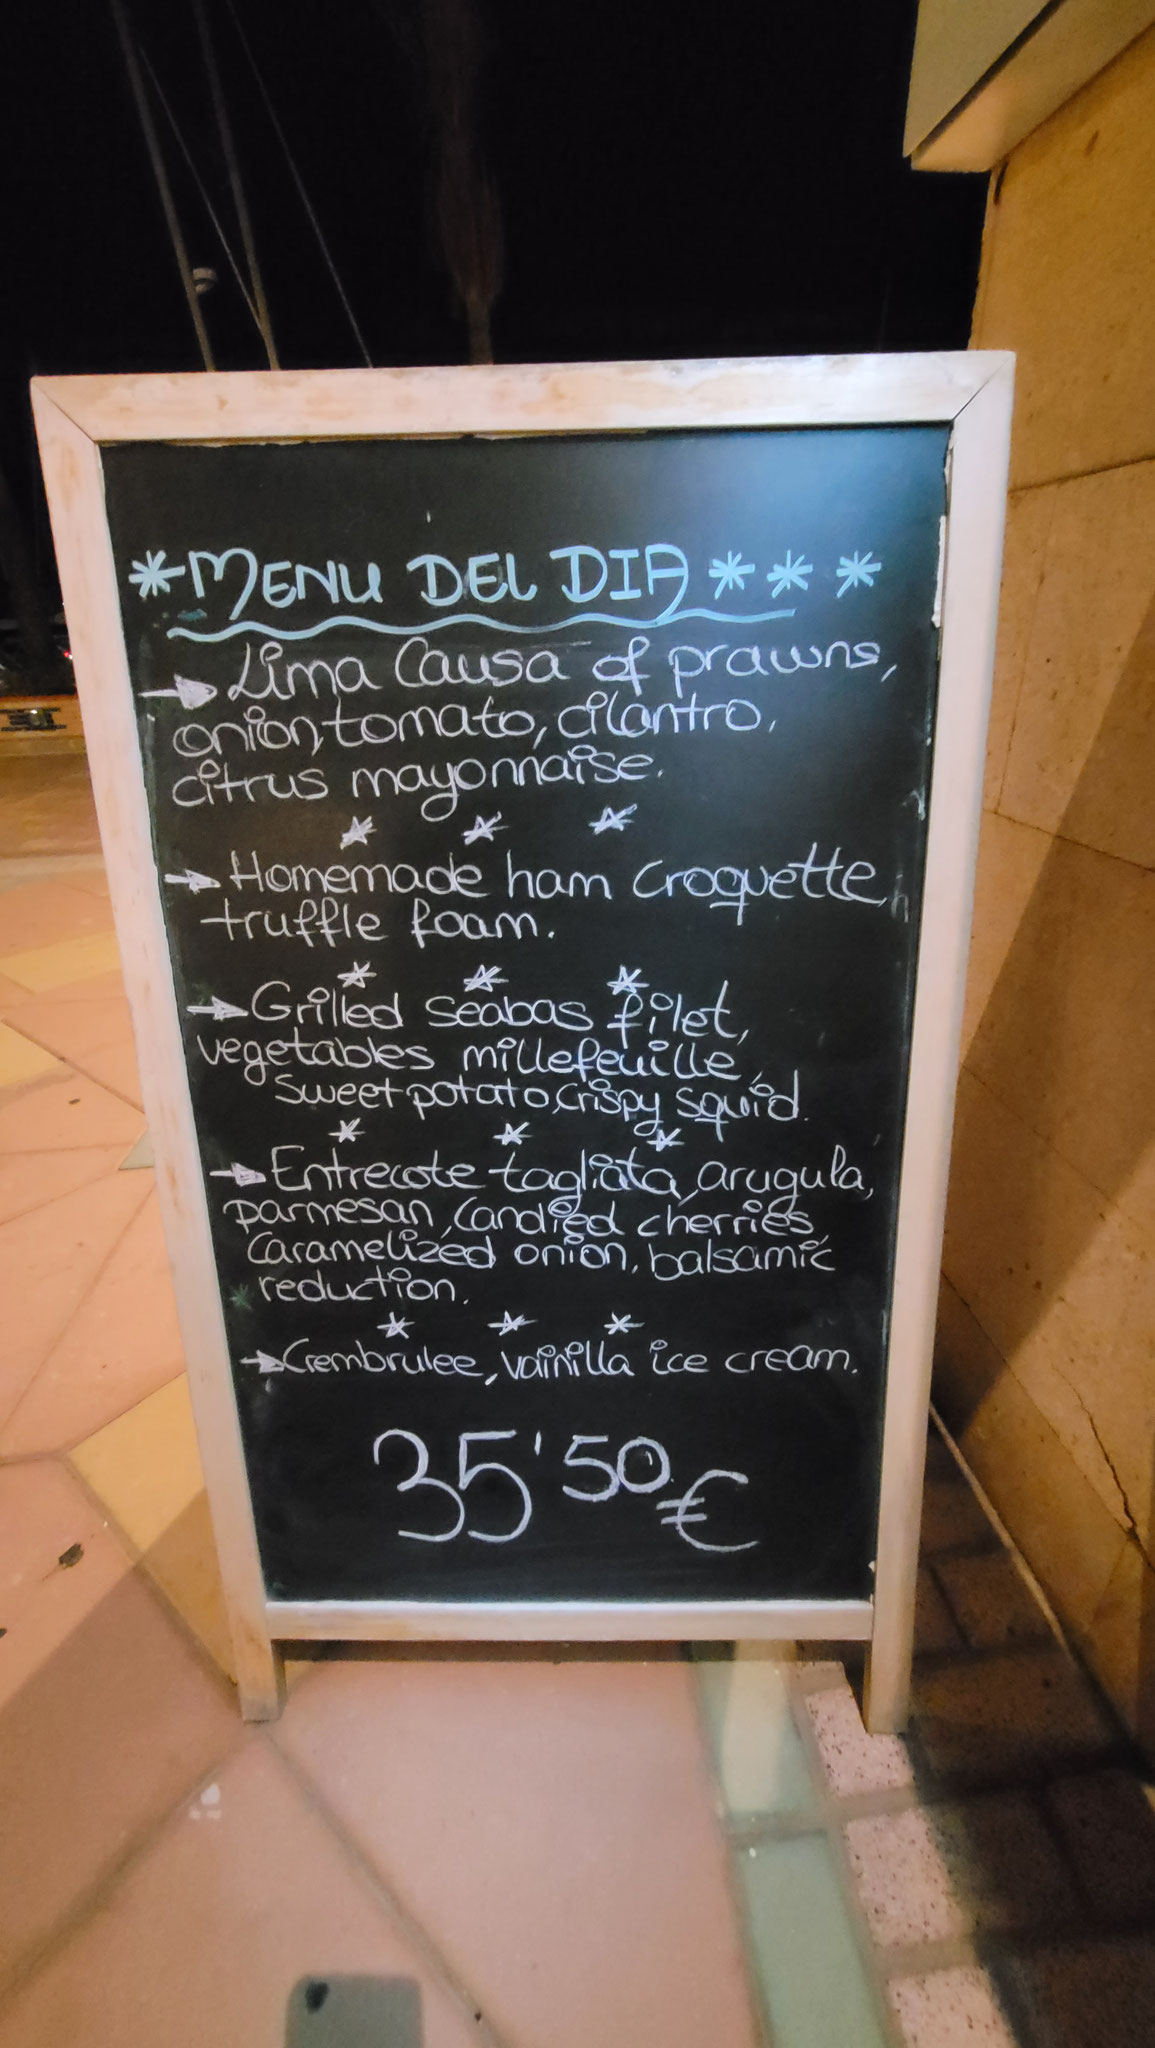 *MENU DEL DIA***
→ Lima Causa of prawns,
onion, tomato, cilantro,
citrus mayonnaise.
* * *
→ Homemade ham croquette,
truffle foam.
* * *
→ Grilled seabas filet,
vegetables millefeuille,
sweet potato, crispy squid.
* * *
→ Entrecote tagliata, arugula,
parmesan, candied cherries,
caramelized onion, balsamic
* reduction.
* * *
→ Crembrulee, vainilla ice cream.
35'50€